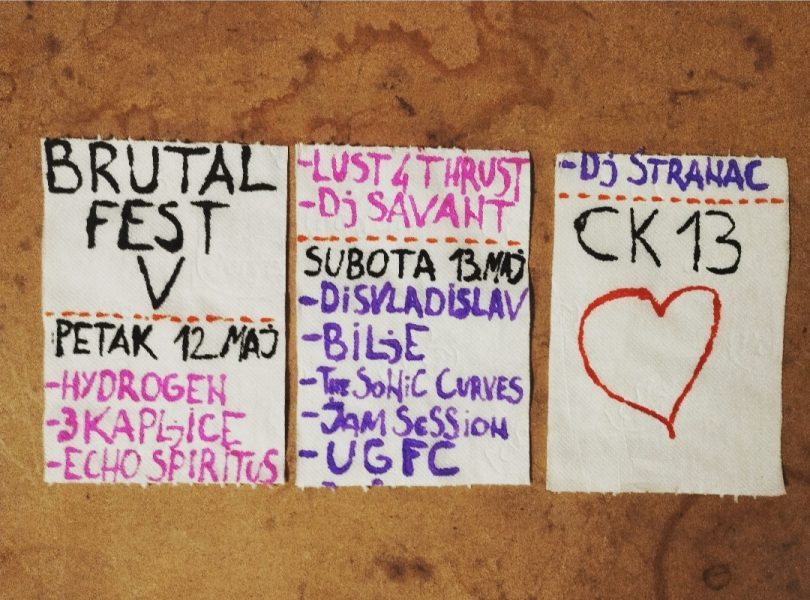 BRUTAL
FEST
V
PETAK 12 MAJ
-HYDROGEN
-3 KAPLjiCE
-ECHO SPIRITUS
-LUST 4 THRUST
-Dj SAVANT
SUBOTA 13.MAJ
-DiSVLADiSLAV
-BiLjE
-THE SONiC CURVES
-JAM SeSSiON
-UGFC
-Dj STRANAC
CK 13